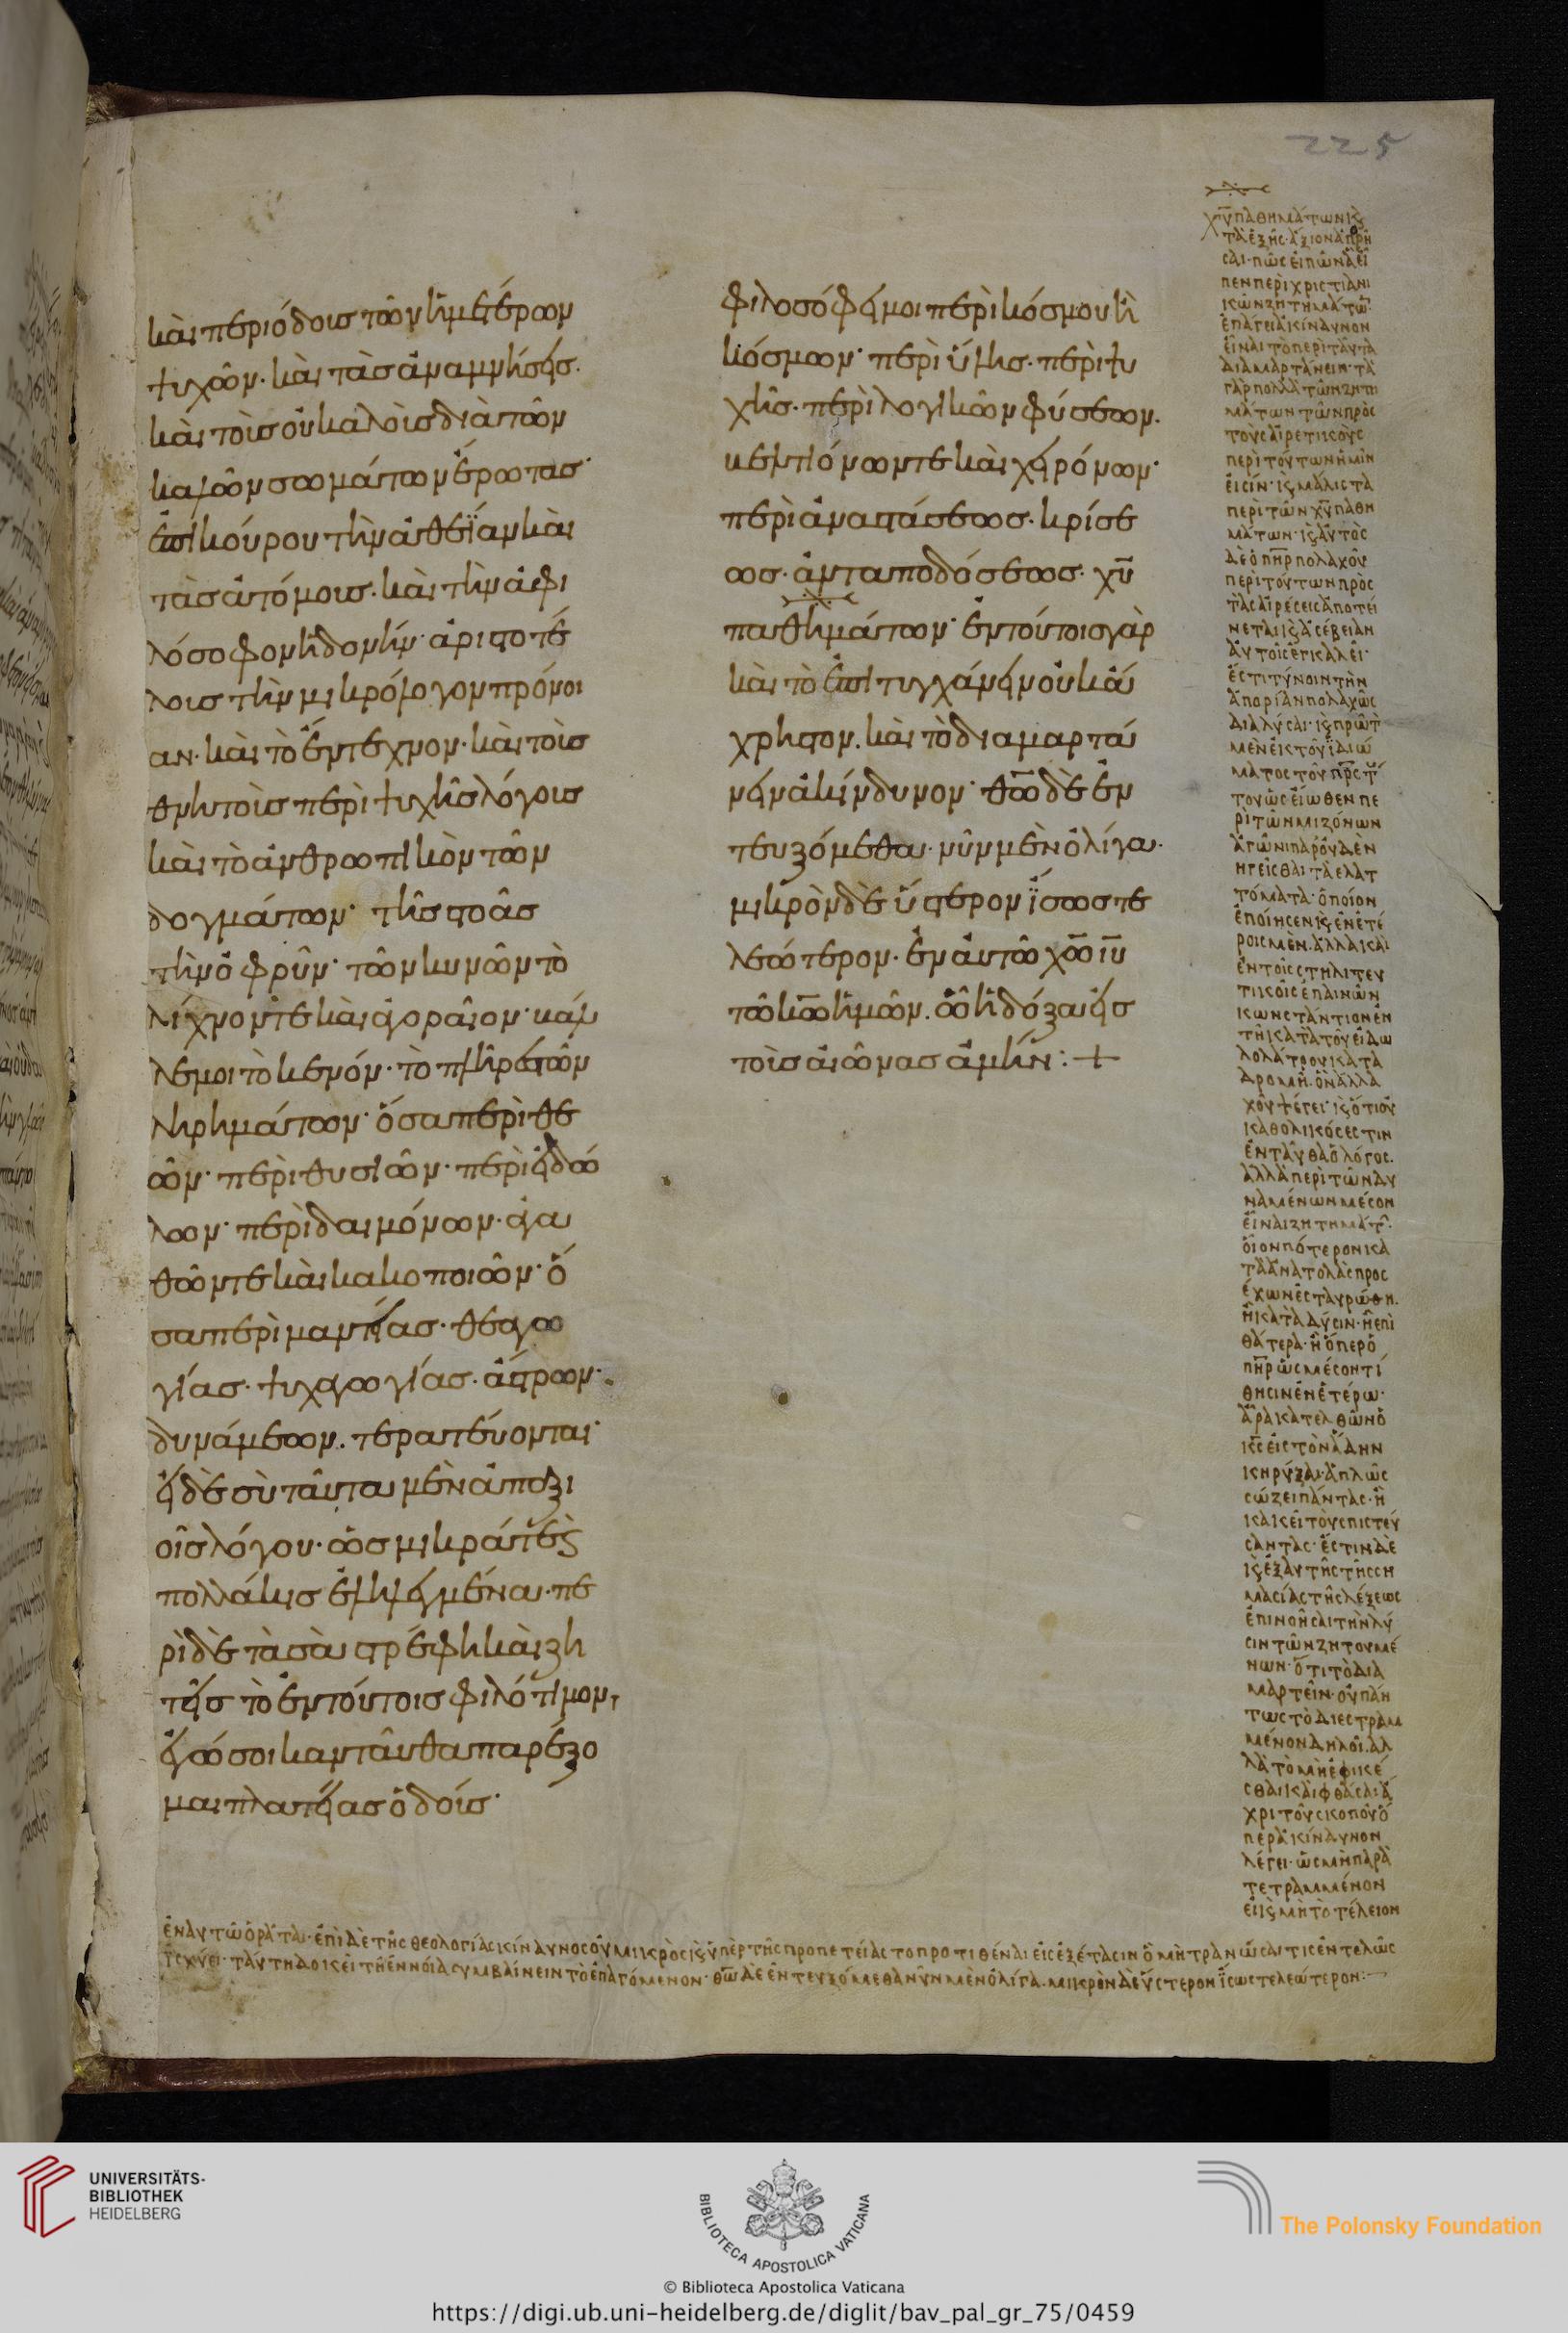 225
καὶ περιόδους τῶν ἡμετέρων
ψυχῶν· καὶ τὰς ἀναμνήσεις·
καὶ τοὺς οὐ καλοὺς διὰ τῶν
καλῶν σωμάτων ἔρωτας·
ἐπικούρου τὴν ἀθεΐαν καὶ
τὰς ἀτόμους· καὶ τὴν ἀφι
λόσοφον ἡδονήν· ἀριστοτέ
λους τὴν μικρόλογον πρόνοι
αν· καὶ τὸ ἔντεχνον· καὶ τοὺς
θνητοὺς περὶ ψυχῆς λόγους
καὶ τὸ ἀνθρωπικὸν τῶν
δογμάτων· τῆς στοᾶς
τὴν ὀφρῦν· τῶν κυνῶν τὸ
λίχνον τε καὶ ἀγοραῖον· βάλ
λε μοι τὸ κενόν· τὸ πλῆρες τῶν
ληρημάτων· ὅσα περὶ θε
ῶν· περὶ θυσιῶν· περὶ εἰδώ
λων· περὶ δαιμόνων· ἀγα
θῶν τε καὶ κακοποιῶν· ὅ
σα περὶ μαντείας· θεαγω
γίας· ψυχαγωγίας· ἄστρων·
δυνάμεων· τερατεύονται·
εἰ δὲ σὺ ταῦτα μὲν ἀπαξι
οῖς λόγου· ὡς μικρά τε καὶ
πολλάκις ἐληλεγμένα· πε
ρὶ δὲ τὰ σὰ στρέφῃ καὶ ζη
τεῖς τὸ ἐν τούτοις φιλότιμον,
ἐγώ σοι κἀνταῦθα παρέξο
μαι πλατείας ὁδούς·
φιλοσόφει μοι περὶ κόσμου ἢ
κόσμων· περὶ ὕλης· περὶ ψυ
χῆς· περὶ λογικῶν φύσεων·
βελτιόνων τε καὶ χειρόνων·
περὶ ἀναστάσεως· κρίσε
ως· ἀνταποδόσεως· χυ
παθημάτων· ἐν τούτοις γὰρ
καὶ τὸ ἐπιτυγχάνειν οὐκ ἄ
χρηστον· καὶ τὸ διαμαρτά
νειν ἀκίνδυνον· θω δὲ ἐν
τευξόμεθα· νῦν μὲν ὀλίγα·
μικρὸν δὲ ὕστερον ἴσως τε
λεώτερον· ἐν αὐτῷ χω ιυ
τῷ κω ἡμῶν. ᾧ ἡ δόξα εἰς
τοὺς αἰῶνας ἀμήν: +
χυ παθημάτων κ(αὶ)
τὰ ἑξῆς· ἄξιον ἀπορῆ
σαι· πῶς εἰπὼν ἀεὶ
πεν περὶ χριστιανι
κῶν ζητημάτω
ἐπάγει ἀκίνδυνον
εἶναι τὸ περὶ ταῦτα
διαμαρτάνειν· τὰ
γὰρ πολλὰ τῶν ζητη
μάτων τῶν πρὸς
τοὺς αἱρετικοὺς
περὶ τούτων ἡμῖν
εἰσίν· κ(αὶ) μάλιστα
περὶ τῶν χυ παθη
μάτων· κ(αὶ) αὐτὸς
δὲ ὁ πηρ πολλαχοῦ
περὶ τούτων πρὸς
τὰς αἱρέσεις ἀποτεί
νεται κ(αὶ) ἀσέβειαν
αὐτοῖς ἐγκαλεῖ·
ἔστι τύνοιν τὴν
ἀπορίαν πολλαχῶς
διαλύσαι· κ(αὶ) πρῶτο
μὲν ἐκ τοῦ ἰδιώ
ματος τοῦ πρς
του ὡς εἴωθεν πε
ρὶ τῶν μιζόνων
ἀγῶνι παρ' οὐδὲν
ἡγεῖσθαι τὰ ἐλατ
τόματα· ὁποῖον
ἐποίησεν κ(αὶ) ἐν ἑτέ
ροις μὲν· ἀλλὰ καὶ
ἐν τοῖς στηλιτευ
τικοῖς ἐπαινῶν
κωνσταντιον ἐν
τῇ κατὰ τοῦ εἰδω
λολάτρου κατα
δρομῇ· ὃν ἀλλα
χοῦ ψέγει· κ(αὶ) ὅτι οὐ
καθολικός ἐστιν
ἐνταῦθα ὁ λόγος·
ἀλλὰ περὶ τῶν δυ
ναμένων μέσον
εἶναι ζητημάτ(ων)·
οἷον πότερον κα
τὰ ἀνατολὰς προς
έχων ἐσταυρώθη·
ἢ κατὰ δύσιν· ἢ ἐπὶ
θάτερα· ἢ ὅπερ ὁ
πηρ ὡς μέσον τί
θησιν ἐν ἑτέρω·
ἆρα κατελθὼν ὁ
κς εἰς τὸν ἅδην
κηρύξαι· ἁπλῶς
σώζει πάντας· ἢ
κἀκεῖ τοὺς πιστεύ
σαντας· ἔστιν δὲ
κ(αὶ) ἐξ αὐτῆς τῆς ση
μασίας τῆς λέξεως
ἐπινοῆσαι τὴν λύ
σιν τῶν ζητουμέ
νων· ὅτι τὸ δια
μαρτεῖν· οὐ πάν
τως τὸ διεστραμ
μένον δηλοῖ· ἀλ
λὰ τὸ μὴ ἐφικέ
σθαι καὶ φθάσαι ἄ
χρι τοῦ σκοποῦ ὅ
περ ἀκίνδυνον
λέγει· ὡς μὴ παρα
τετραμμένον
εἰ κ(αὶ) μὴ τὸ τέλειον
ἐν αὐτῷ ὁρᾶται· ἐπὶ δὲ τῆς θεολογίας κίνδυνος οὐ μικρὸς κ(αὶ) ὑπὲρ τῆς προπετείας το προτιθέναι εἰς ἐξέτασιν ὃ μὴ τρανῶσαι τις ἐντελῶς
ἰσχύει· ταύτη δοκεῖ τῇ ἐννοία συμβαίνειν τὸ ἐπαγόμενον· θω δὲ ἐντευξόμεθα νῦν μὲν ὀλίγα· μικρὸν δὲ ὕστερον ἴσως τελεώτερον:
UNIVERSITÄTS-
BIBLIOTHEK
HEIDELBERG
BIBLIOTECA APOSTOLICA VATICANA
The Polonsky Foundation
© Biblioteca Apostolica Vaticana
https://digi.ub.uni-heidelberg.de/diglit/bav_pal_gr_75/0459